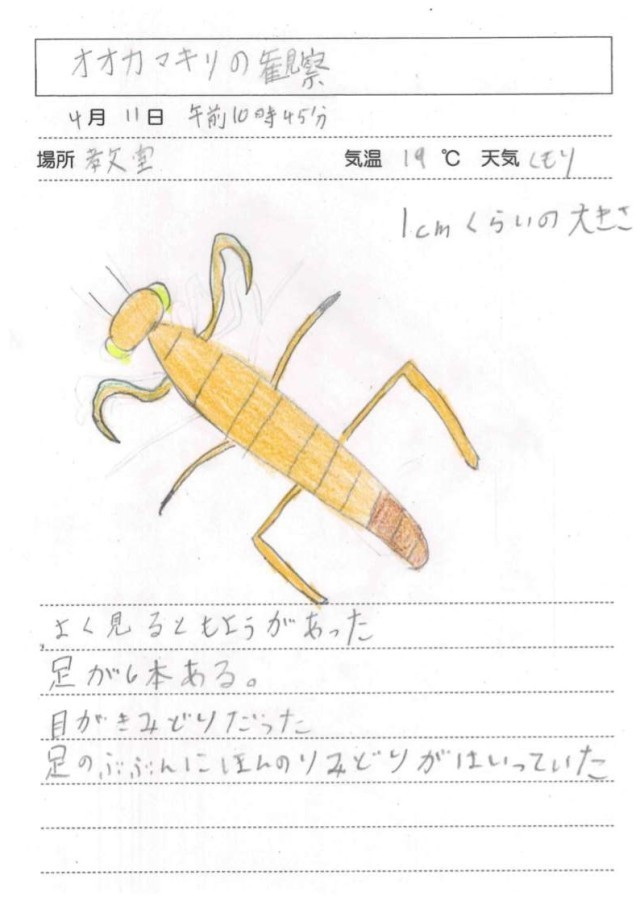 オオカマキリの観察
4月 11日 午前10時45分
場所 教室 気温 19 ℃ 天気 くもり
1cmくらいの大きさ
よく見るともようがあった
足が6本ある。
目がきみどりだった
足のぶぶんにほんのりみどりがはいっていた